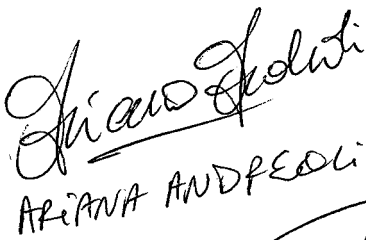 Ariana Andreoli
ARiANA ANDREOLi